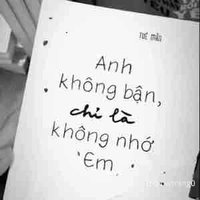 TUỆ MẪN
Anh
không bận,
chỉ là
không nhớ
Em